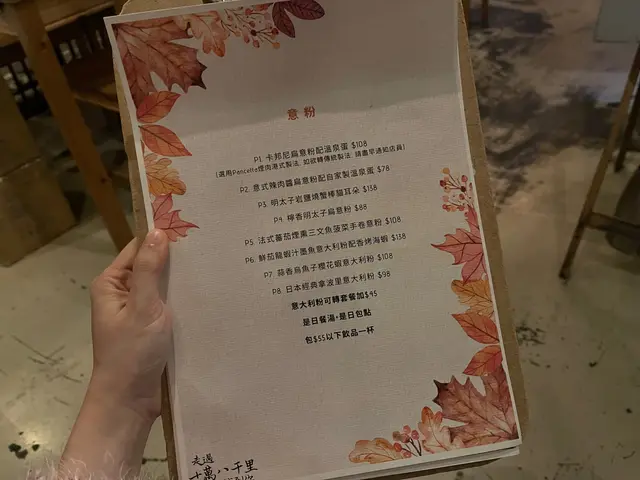 意粉
P1. 卡邦尼扁意粉配溫泉蛋 $108
(選用Pancetta煙肉港式製法, 如欲轉傳統製法, 請盡早通知店員)
P2. 意式辣肉醬扁意粉配自家製溫泉蛋 $78
P3. 明太子岩鹽燒蟹棒貓耳朵 $158
P4. 檸香明太子扁意粉 $88
P5. 法式蕃茄煙熏三文魚菠菜手卷意粉 $108
P6. 鮮茄龍蝦汁墨魚意大利粉配香烤海蝦 $138
P7. 蒜香烏魚子櫻花蝦意大利粉 $108
P8. 日本經典拿波里意大利粉 $98
意大利粉可轉套餐加$45
是日餐湯+是日包點
包$55以下飲品一杯
走過
十萬八千里